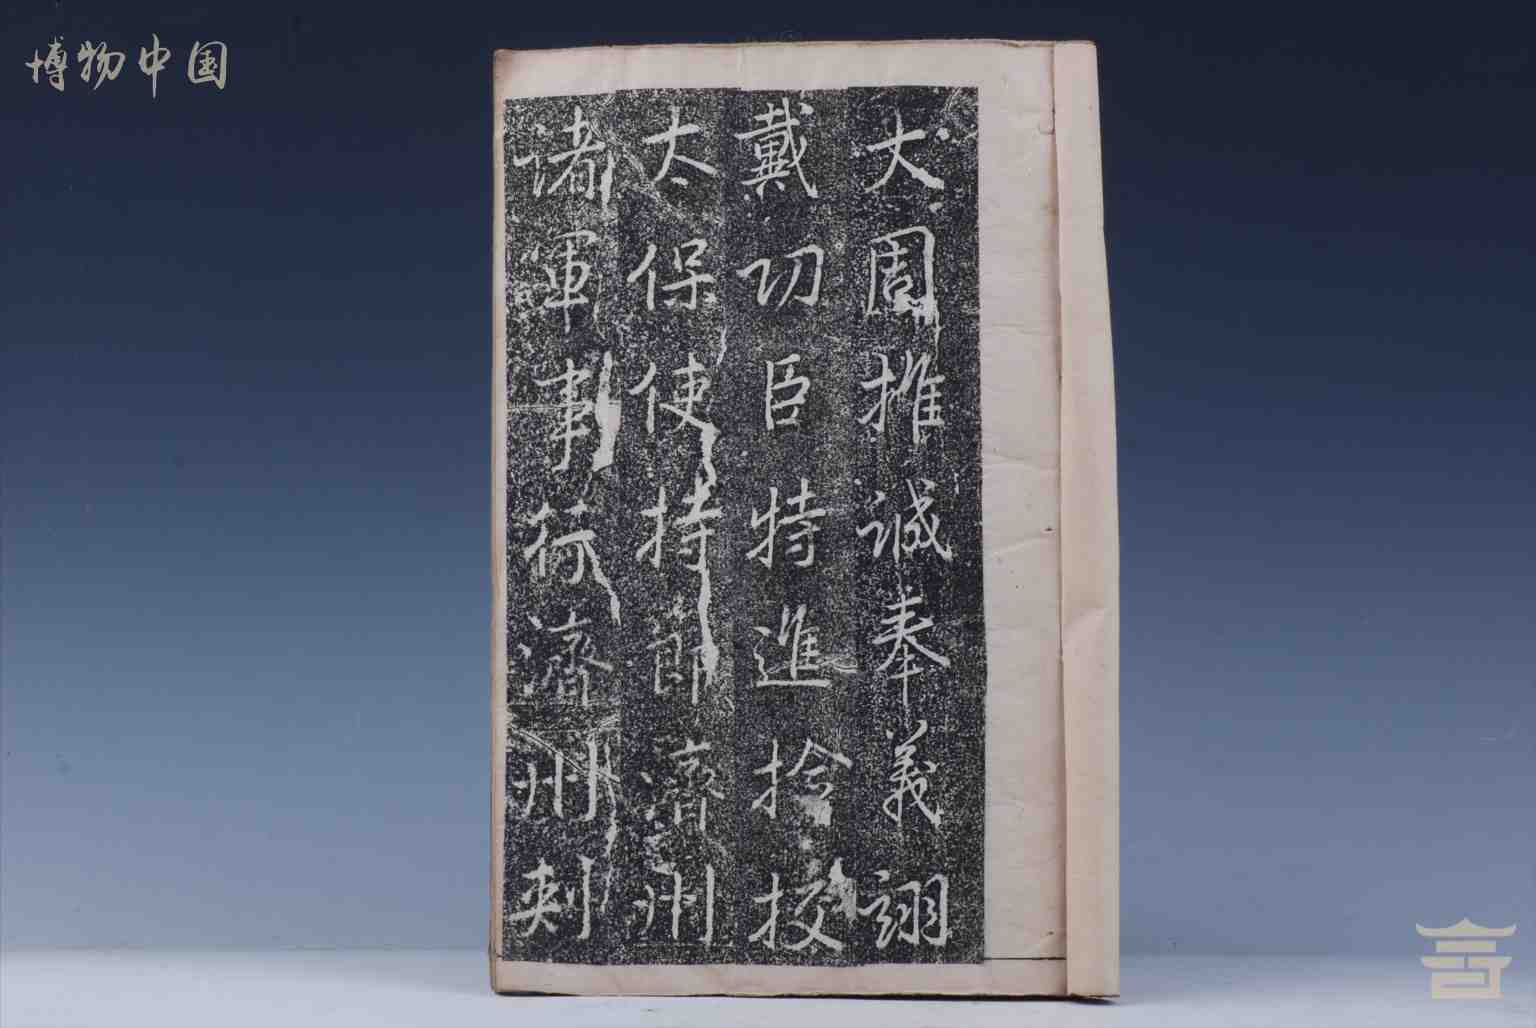 博物中国
大周推誠奉義翊
戴功臣特進撿挍
太保使持節濟州
諸軍事行濟州刺